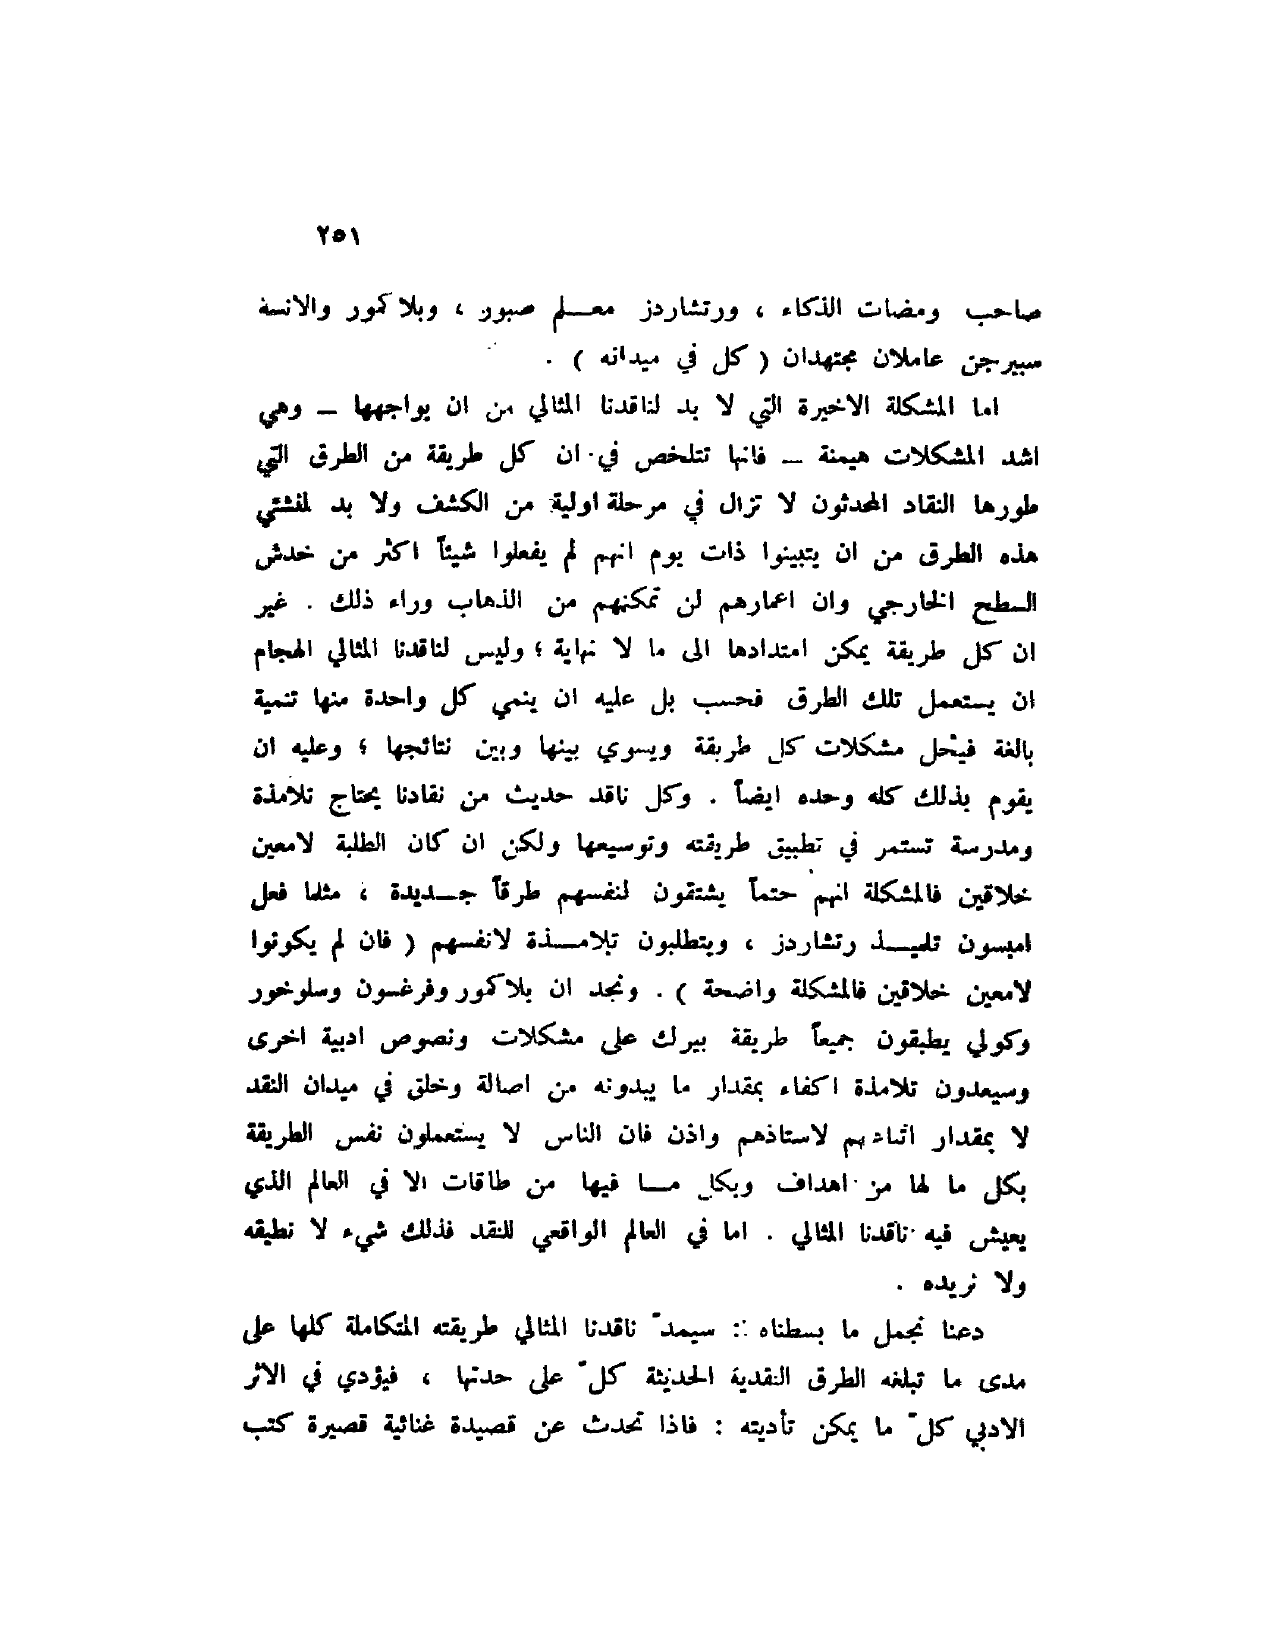 ٢٥١
صاحب ومضات الذكاء ، ورتشاردز معـــلم صبور ، وبلاكمور والانسة
سبيرجن عاملان مجتهدان ( كل في ميدانه ) .
اما المشكلة الاخيرة التي لا بد لناقدنا المثالي من ان يواجهها – وهي
اشد المشكلات هيمنة – فانها تتلخص في ان كل طريقة من الطرق التي
طورها النقاد المحدثون لا تزال في مرحلة اولية من الكشف ولا بد لمنشئي
هذه الطرق من ان يتبينوا ذات يوم انهم لم يفعلوا شيئاً اكثر من خدش
السطح الخارجي وان اعمارهم لن تمكنهم من الذهاب وراء ذلك . غير
ان كل طريقة يمكن امتدادها الى ما لا نهاية ؛ وليس لناقدنا المثالي الهجام
ان يستعمل تلك الطرق فحسب بل عليه ان ينمي كل واحدة منها تنمية
بالغة فيحل مشكلات كل طريقة ويسوي بينها وبين نتائجها ؛ وعليه ان
يقوم بذلك كله وحده ايضاً . وكل ناقد حديث من نقادنا يحتاج تلامذة
ومدرسة تستمر في تطبيق طريقته وتوسيعها ولكن ان كان الطلبة لامعين
خلاقين فالمشكلة انهم حتماً يشتقون لنفسهم طرقاً جـــديدة ، مثلما فعل
امبسون تلميـــذ رتشاردز ، ويتطلبون تلامـــذة لانفسهم ( فان لم يكونوا
لامعين خلاقين فالمشكلة واضحة ) . ونجد ان بلاكمور وفرغسون وسلوخور
وكولي يطبقون جميعاً طريقة بيرك على مشكلات ونصوص ادبية اخرى
وسيعدون تلامذة اكفاء بمقدار ما يبدونه من اصالة وخلق في ميدان النقد
لا بمقدار انتمائهم لاستاذهم واذن فان الناس لا يستعملون نفس الطريقة
بكل ما لها من اهداف وبكل مـــا فيها من طاقات الا في العالم الذي
يعيش فيه ناقدنا المثالي . اما في العالم الواقعي للنقد فذلك شيء لا نطيقه
ولا نريده .
دعنا نجمل ما بسطناه : سيمدّ ناقدنا المثالي طريقته المتكاملة كلها على
مدى ما تبلغه الطرق النقدية الحديثة كلّ على حدتها ، فيؤدي في الاثر
الادبي كلّ ما يمكن تأديته : فاذا تحدث عن قصيدة غنائية قصيرة كتب